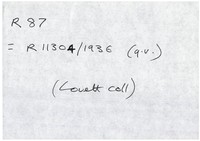 R 87
= R 11304/1936 (q.v.)
(Lovett coll)